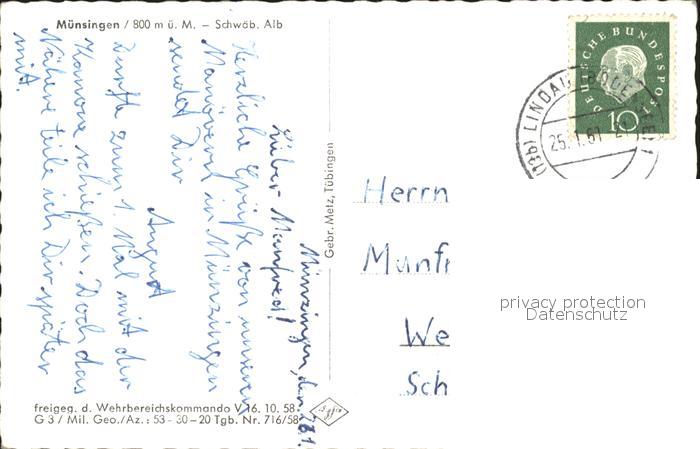 Münsingen / 800 m ü. M. – Schwäb. Alb
Münzingen, den
Lieber Manfred!
Herzliche Grüße von unseren
Manövern in Münzingen
sendet Dir
August
Durfte zum 1. Mal mit der
Kanone schießen. Doch das
Nähere teile ich Dir später
mit.
freigeg. d. Wehrbereichskommando V 16. 10. 58
G 3 / Mil. Geo./Az.: 53-30-20 Tgb. Nr. 716/58
Gebr. Metz, Tübingen
DEUTSCHE BUNDESPOST
10
(13b) LINDAU
25.1.61
Herrn
Manfr
We
Sch
privacy protection
Datenschutz